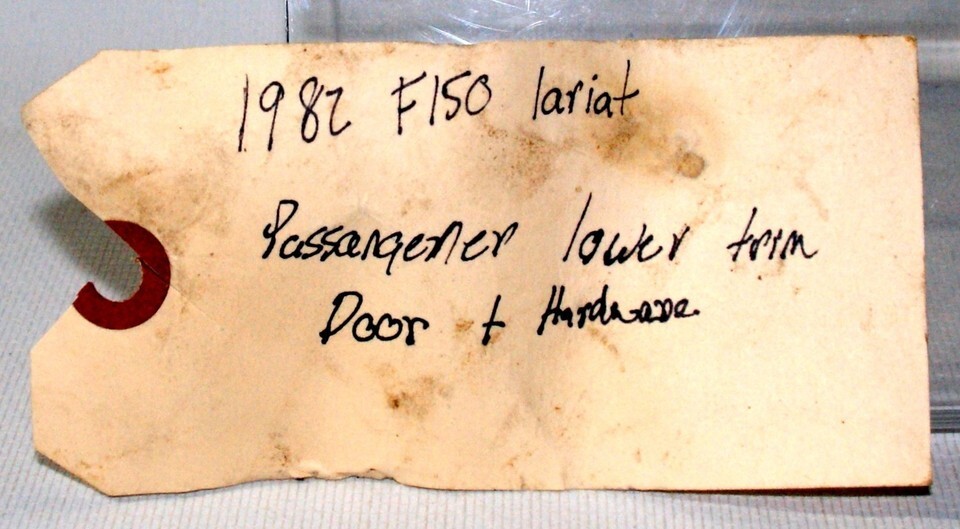 1982 F150 lariat
Passangerner lower trim
Door + Hardware